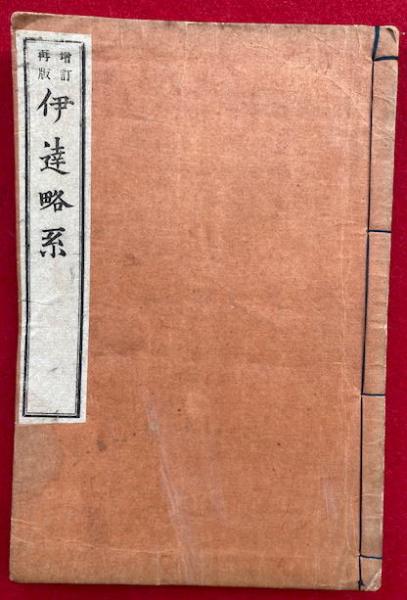 増訂
再版
伊達略系